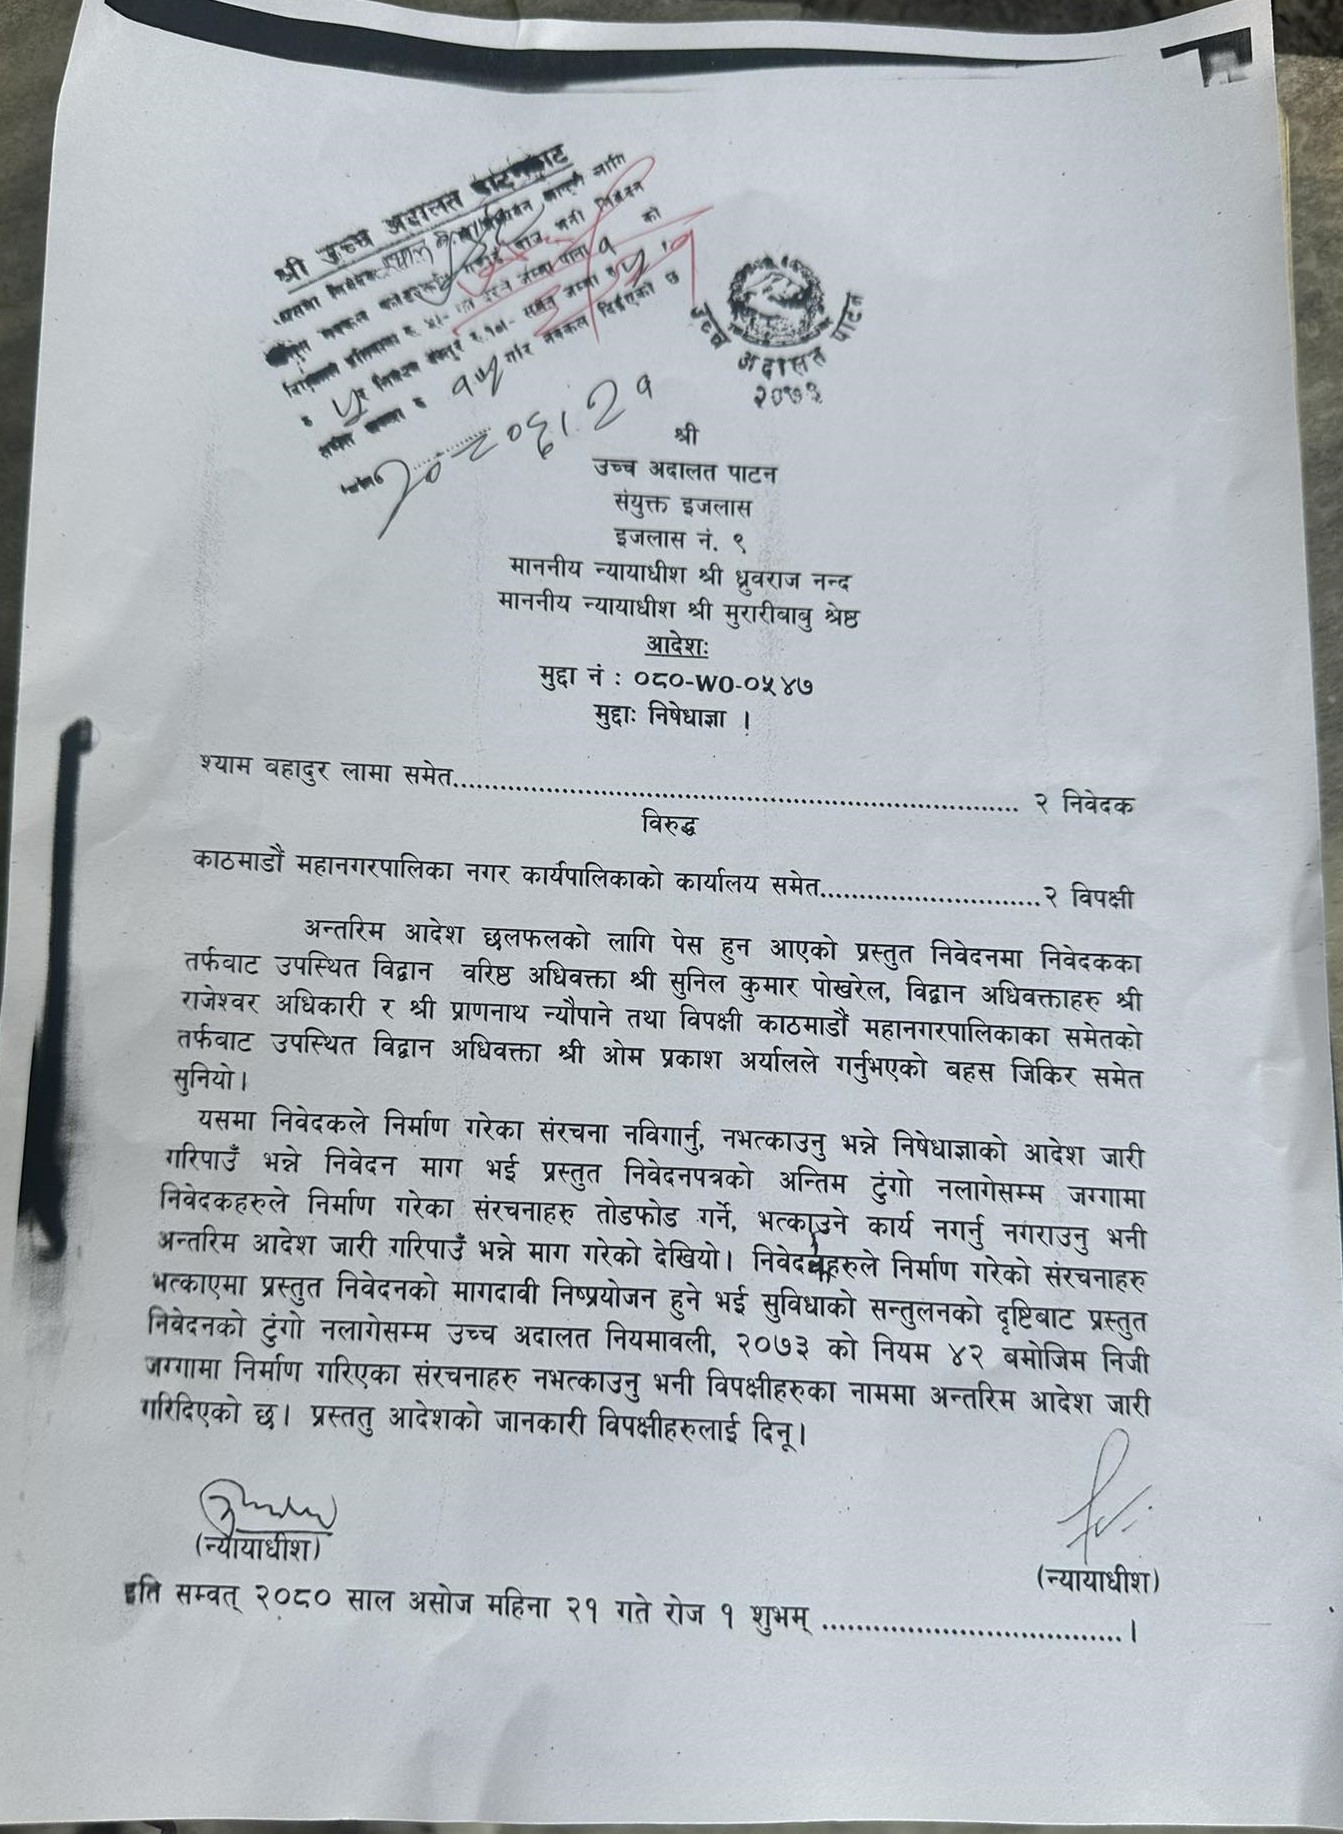 श्री उच्च अदालत पाटन
उच्च अदालत पाटन
२०७३
२०८०।६।२१
श्री
उच्च अदालत पाटन
संयुक्त इजलास
इजलास नं. ९
माननीय न्यायाधीश श्री ध्रुवराज नन्द
माननीय न्यायाधीश श्री मुरारीबाबु श्रेष्ठ
आदेशः
मुद्दा नं : ०८०-WO-०५४७
मुद्दाः निषेधाज्ञा ।
श्याम बहादुर लामा समेत.................................................................................... २ निवेदक
विरुद्ध
काठमाडौं महानगरपालिका नगर कार्यपालिकाको कार्यालय समेत..............................२ विपक्षी
अन्तरिम आदेश छलफलको लागि पेस हुन आएको प्रस्तुत निवेदनमा निवेदकका
तर्फबाट उपस्थित विद्वान वरिष्ठ अधिवक्ता श्री सुनिल कुमार पोखरेल, विद्वान अधिवक्ताहरु श्री
राजेश्वर अधिकारी र श्री प्राणनाथ न्यौपाने तथा विपक्षी काठमाडौं महानगरपालिकाका समेतको
तर्फबाट उपस्थित विद्वान अधिवक्ता श्री ओम प्रकाश अर्यालले गर्नुभएको बहस जिकिर समेत
सुनियो।
यसमा निवेदकले निर्माण गरेका संरचना नविगार्नु, नभत्काउनु भन्ने निषेधाज्ञाको आदेश जारी
गरिपाउँ भन्ने निवेदन माग भई प्रस्तुत निवेदनपत्रको अन्तिम टुंगो नलागेसम्म जग्गामा
निवेदकहरुले निर्माण गरेका संरचनाहरु तोडफोड गर्ने, भत्काउने कार्य नगर्नु नगराउनु भनी
अन्तरिम आदेश जारी गरिपाउँ भन्ने माग गरेको देखियो। निवेदकहरुले निर्माण गरेको संरचनाहरु
भत्काएमा प्रस्तुत निवेदनको मागदावी निष्प्रयोजन हुने भई सुविधाको सन्तुलनको दृष्टिबाट प्रस्तुत
निवेदनको टुंगो नलागेसम्म उच्च अदालत नियमावली, २०७३ को नियम ४२ बमोजिम निजी
जग्गामा निर्माण गरिएका संरचनाहरु नभत्काउनु भनी विपक्षीहरुका नाममा अन्तरिम आदेश जारी
गरिदिएको छ। प्रस्ततु आदेशको जानकारी विपक्षीहरुलाई दिनू।
(न्यायाधीश)
(न्यायाधीश)
इति सम्वत् २०८० साल असोज महिना २१ गते रोज १ शुभम् .....................................।